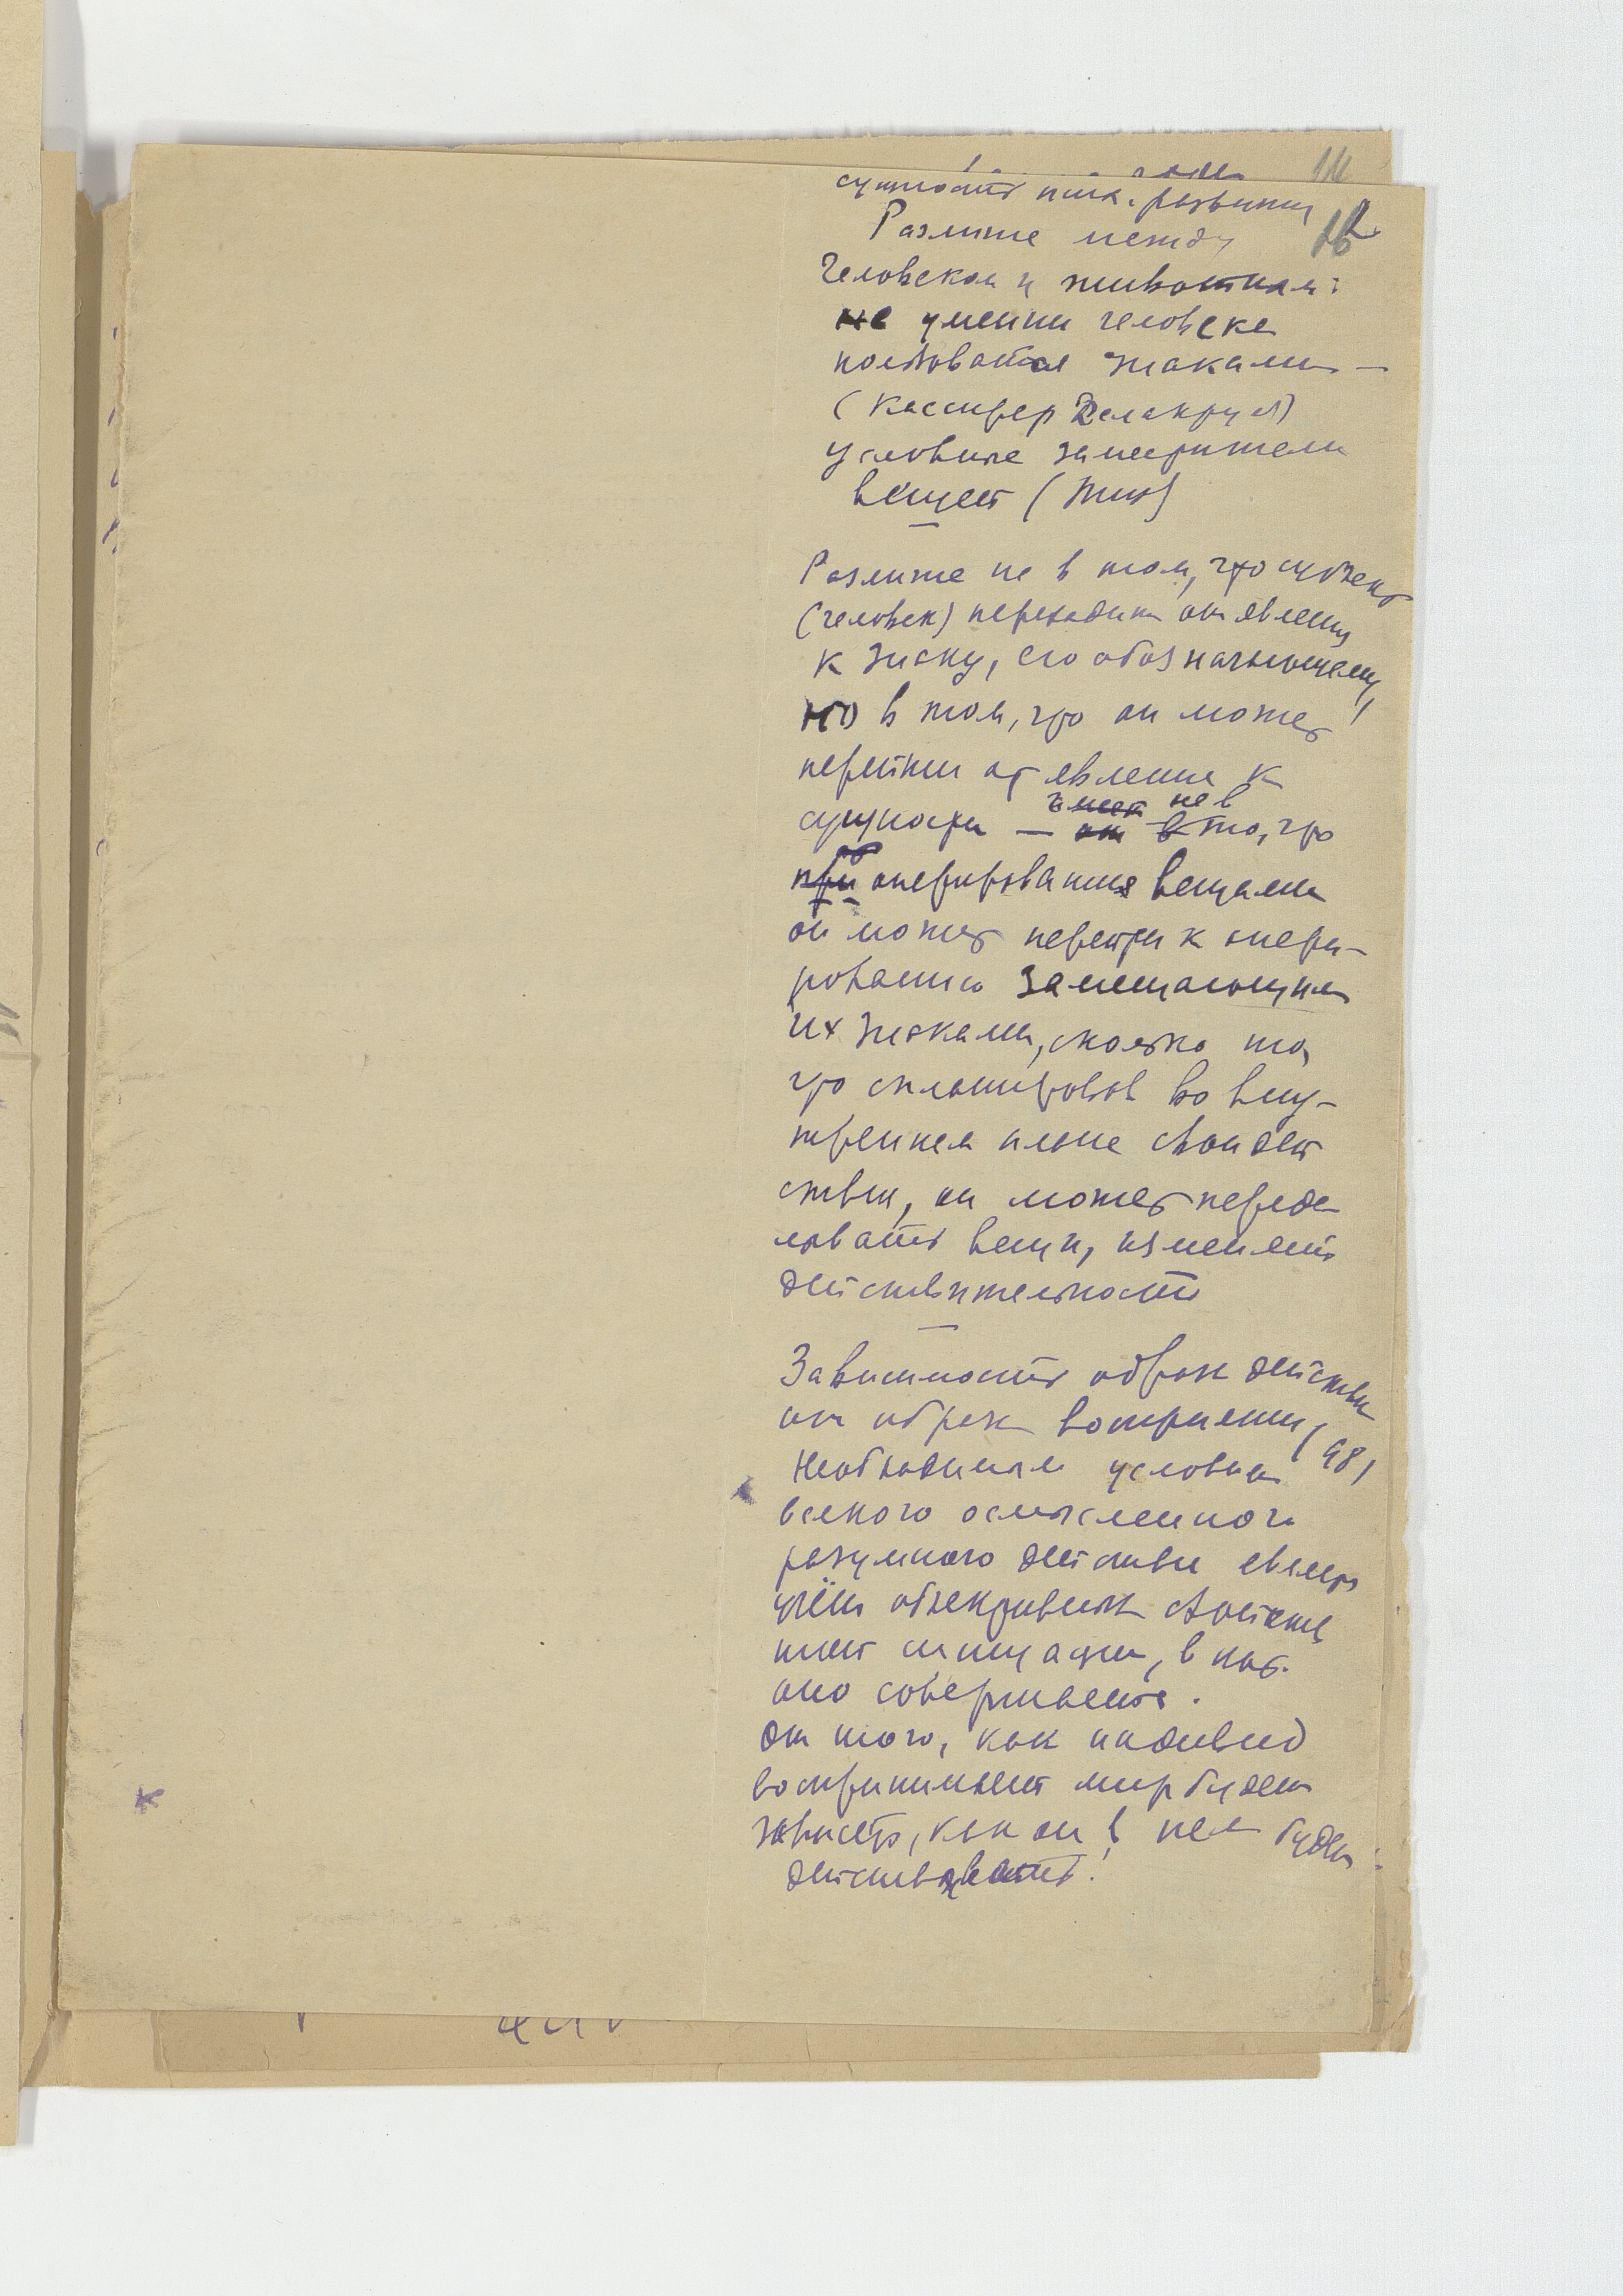 сущность псих. развития
Различие между
человеком и животным:
не умении человека
пользоваться знаками —
(Кассирер Делакруа)
условные заместители
вещей (Пиаж)
Различие не в том, что субъект
(человек) переходит от явления
к знаку, его обозначающему,
но в том, что он может
перейти от явления к
сущности — не в то, что
оперирования вещами
он может перейти к опери-
рованию замещающими
их знаками, сколько то,
что спланировав во вну-
треннем плане свои дей
ствия, он может переде
лывать вещи, изменять
действительность
Зависимость образа действия
от образа восприятия,
Необходимым условием 48,
всякого осмысленного
разумного действия является
учёт объективных свойств
той ситуации, в кот.
оно совершается.
От того, как индивид
воспринимает мир будет
зависеть, как он в нем будет
действовать!